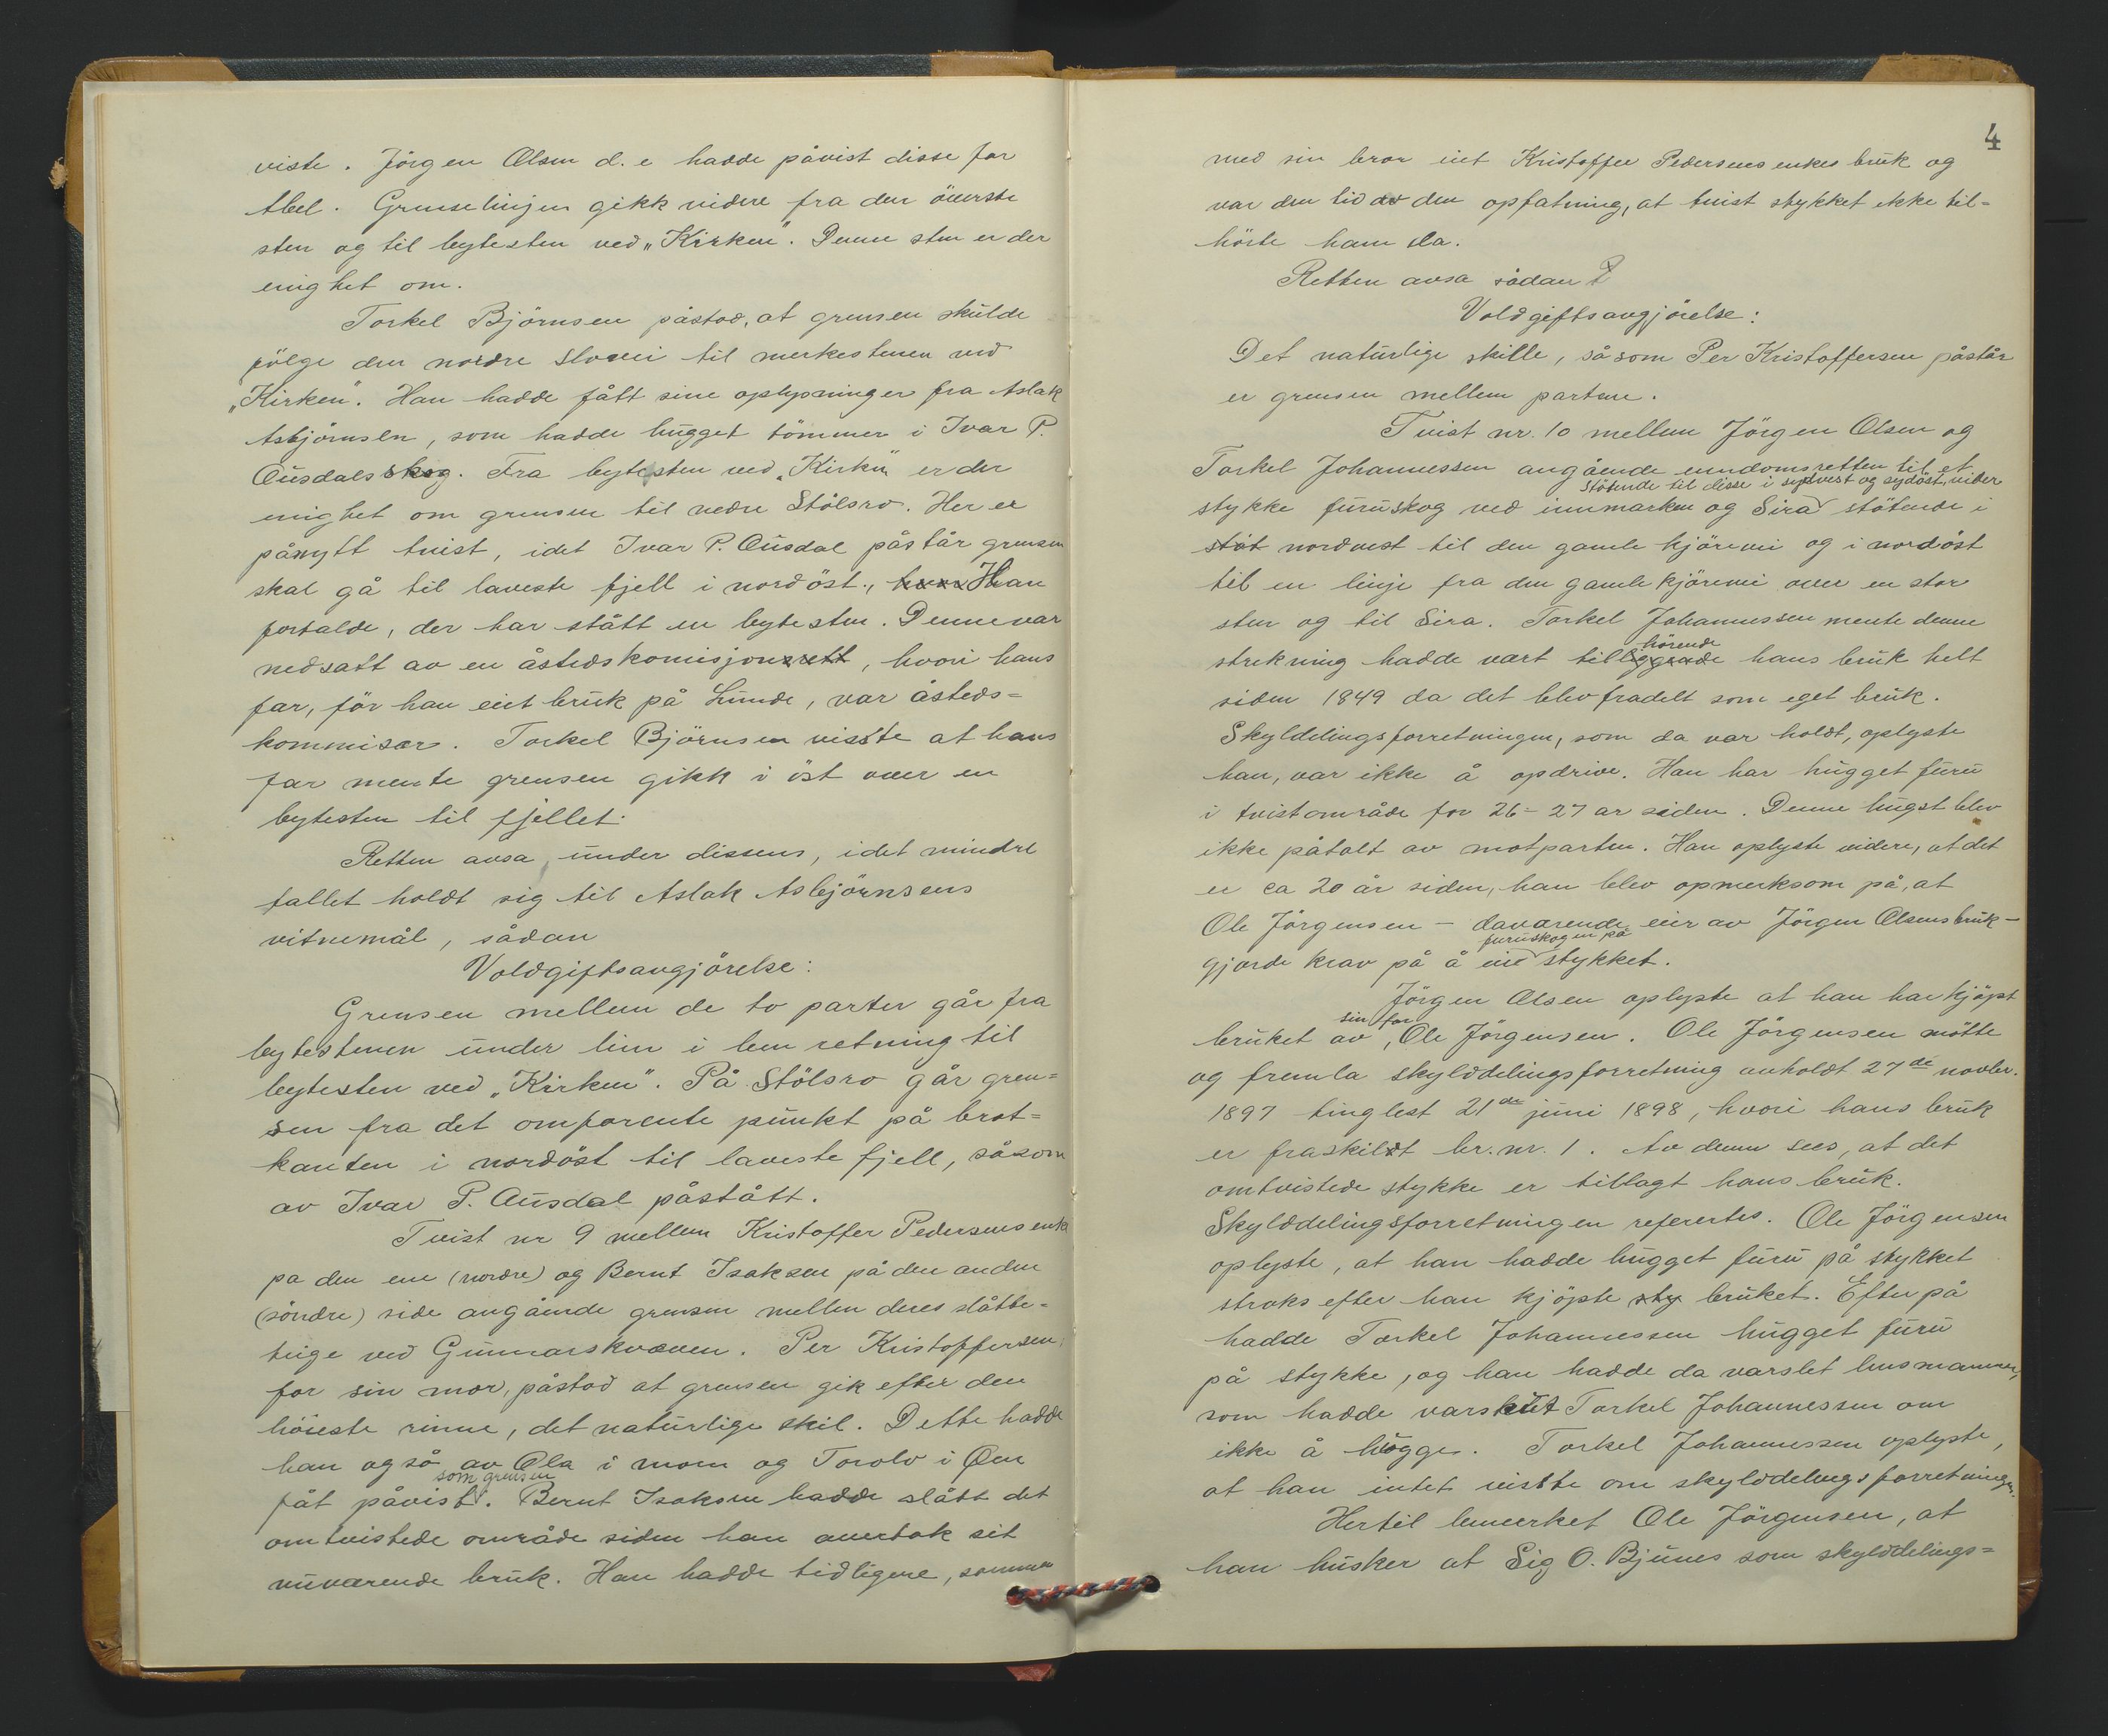 viste. Jörgen Olsen d. e hadde påvist disse for
Abel. Grenselinjen gikk videre fra den överste
sten og til bytesten ved „Kirken”. Denne sten er der
enighet om.
Torkel Björnsen påstod, at grensen skulde
fölge den nordre slovei til merkestenen ved
„Kirken”. Han hadde fått sine oplysninger fra Aslak
Asbjörnsen, som hadde hugget tömmer i Ivar P.
Ousdals skog. Fra bytesten ved „Kirken” er der
enighet om grensen til nedre Stölsro. Her er
pånytt tvist, idet Ivar P. Ousdal påstår grensen
skal gå til laveste fjell i nordöst., Han
fortalde, der har stått en bytesten. Denne var
nedsatt av en åstedskomisjonsrett, hvori hans
far, för han eiet bruk på Lunde, var åsteds=
kommisær. Torkel Björnsen visste at hans
far mente grensen gikk i öst over en
bytesten til fjellet.
Retten avsa under dissens, idet mindre
tallet holdt sig til Aslak Asbjörnsens
vitnemål, sådan
Voldgiftsavgjörelse:
Grensen mellem de to parter går fra
bytestenen under linn i lem retning til
bytesten ved „Kirken”. På Stölsro går gren=
sen fra det omforente punkt på brot=
kanten i nordöst til laveste fjell, såsom
av Ivar P. Ousdal påstått.
Tvist nr 9 mellem Kristoffer Pedersens enke
pa den ene (nordre) og Bernt Isaksen på den anden
(söndre) side angående grensen mellem deres slåtte=
teige ved Gunnarskvæven. Per Kristoffersen,
for sin mor, påstod at grensen gik efter den
höieste rinne, det naturlige skil. Dette hadde
han også av Ola i moen og Torolv i Øen
som grensen
fåt påvist. Bernt Isaksen hadde slått det
omtvistede område siden han overtok sit
nuværende bruk. Han hadde tidligere, sammen
4
med sin bror eiet Kristoffer Pedersens enkes bruk og
var den tid av den opfatning, at tvist stykket ikke til=
hörte ham da.
Retten avsa sådan
Voldgiftsavgjörelse:
Det naturlige skille, såsom Per Kristoffersen påstår
er grensen mellem partene.
Tvist nr. 10 mellem Jörgen Olsen og
Torkel Johannessen angående eiendomsretten til et
stötende til disse i sydvest og sydöst, vider
stykke furuskog ved innmarken og Sira stötende i
stöt nordvest til den gamle kjörevei og i nordöst
til en linje fra den gamle kjörevei over en stor
sten og til Sira. Torkel Johannessen mente denne
hörende
strekning hadde vært tilliggende hans bruk helt
siden 1849 da det blev fradelt som eget bruk.
Skylddelingsforretningen, som da var holdt, oplyste
han, var ikke å opdrive. Han har hugget furu
i tvistområde for 26-27 ar siden. Denne hugst blev
ikke påtalt av motparten. Han oplyste videre, at det
er ca 20 år siden, han blev opmerksom på, at
Ole Jörgensen - daværende eier av Jörgen Olsens bruk -
furuskogen på
gjorde krav på å eie stykket.
Jörgen Olsen oplyste at han har kjöpt
sin far
bruket av, Ole Jörgensen. Ole Jörgensen mötte
og fremla skylddelingsforretning avholdt 27de novbr.
1897 tinglest 21de juni 1898, hvori hans bruk
er fraskildt br. nr. 1. Av denne sees, at det
omtvistede stykke er tillagt hans bruk.
Skylddelingsforretningen refererites. Ole Jörgensen
oplyste, at han hadde hugget furu på stykket
straks efter han kjöpte sty bruket. Efter på
hadde Torkel Johannessen hugget furu
på stykke, og han hadde da varslet husmannen,
som hadde varskuet Torkel Johannessen om
ikke å hugge. Torkel Johannessen oplyste,
at han intet visste om skylddelingsforretningen.
Hertil bemerket Ole Jörgensen, at
han husker at Sig O. Bjunes som skylddelings=